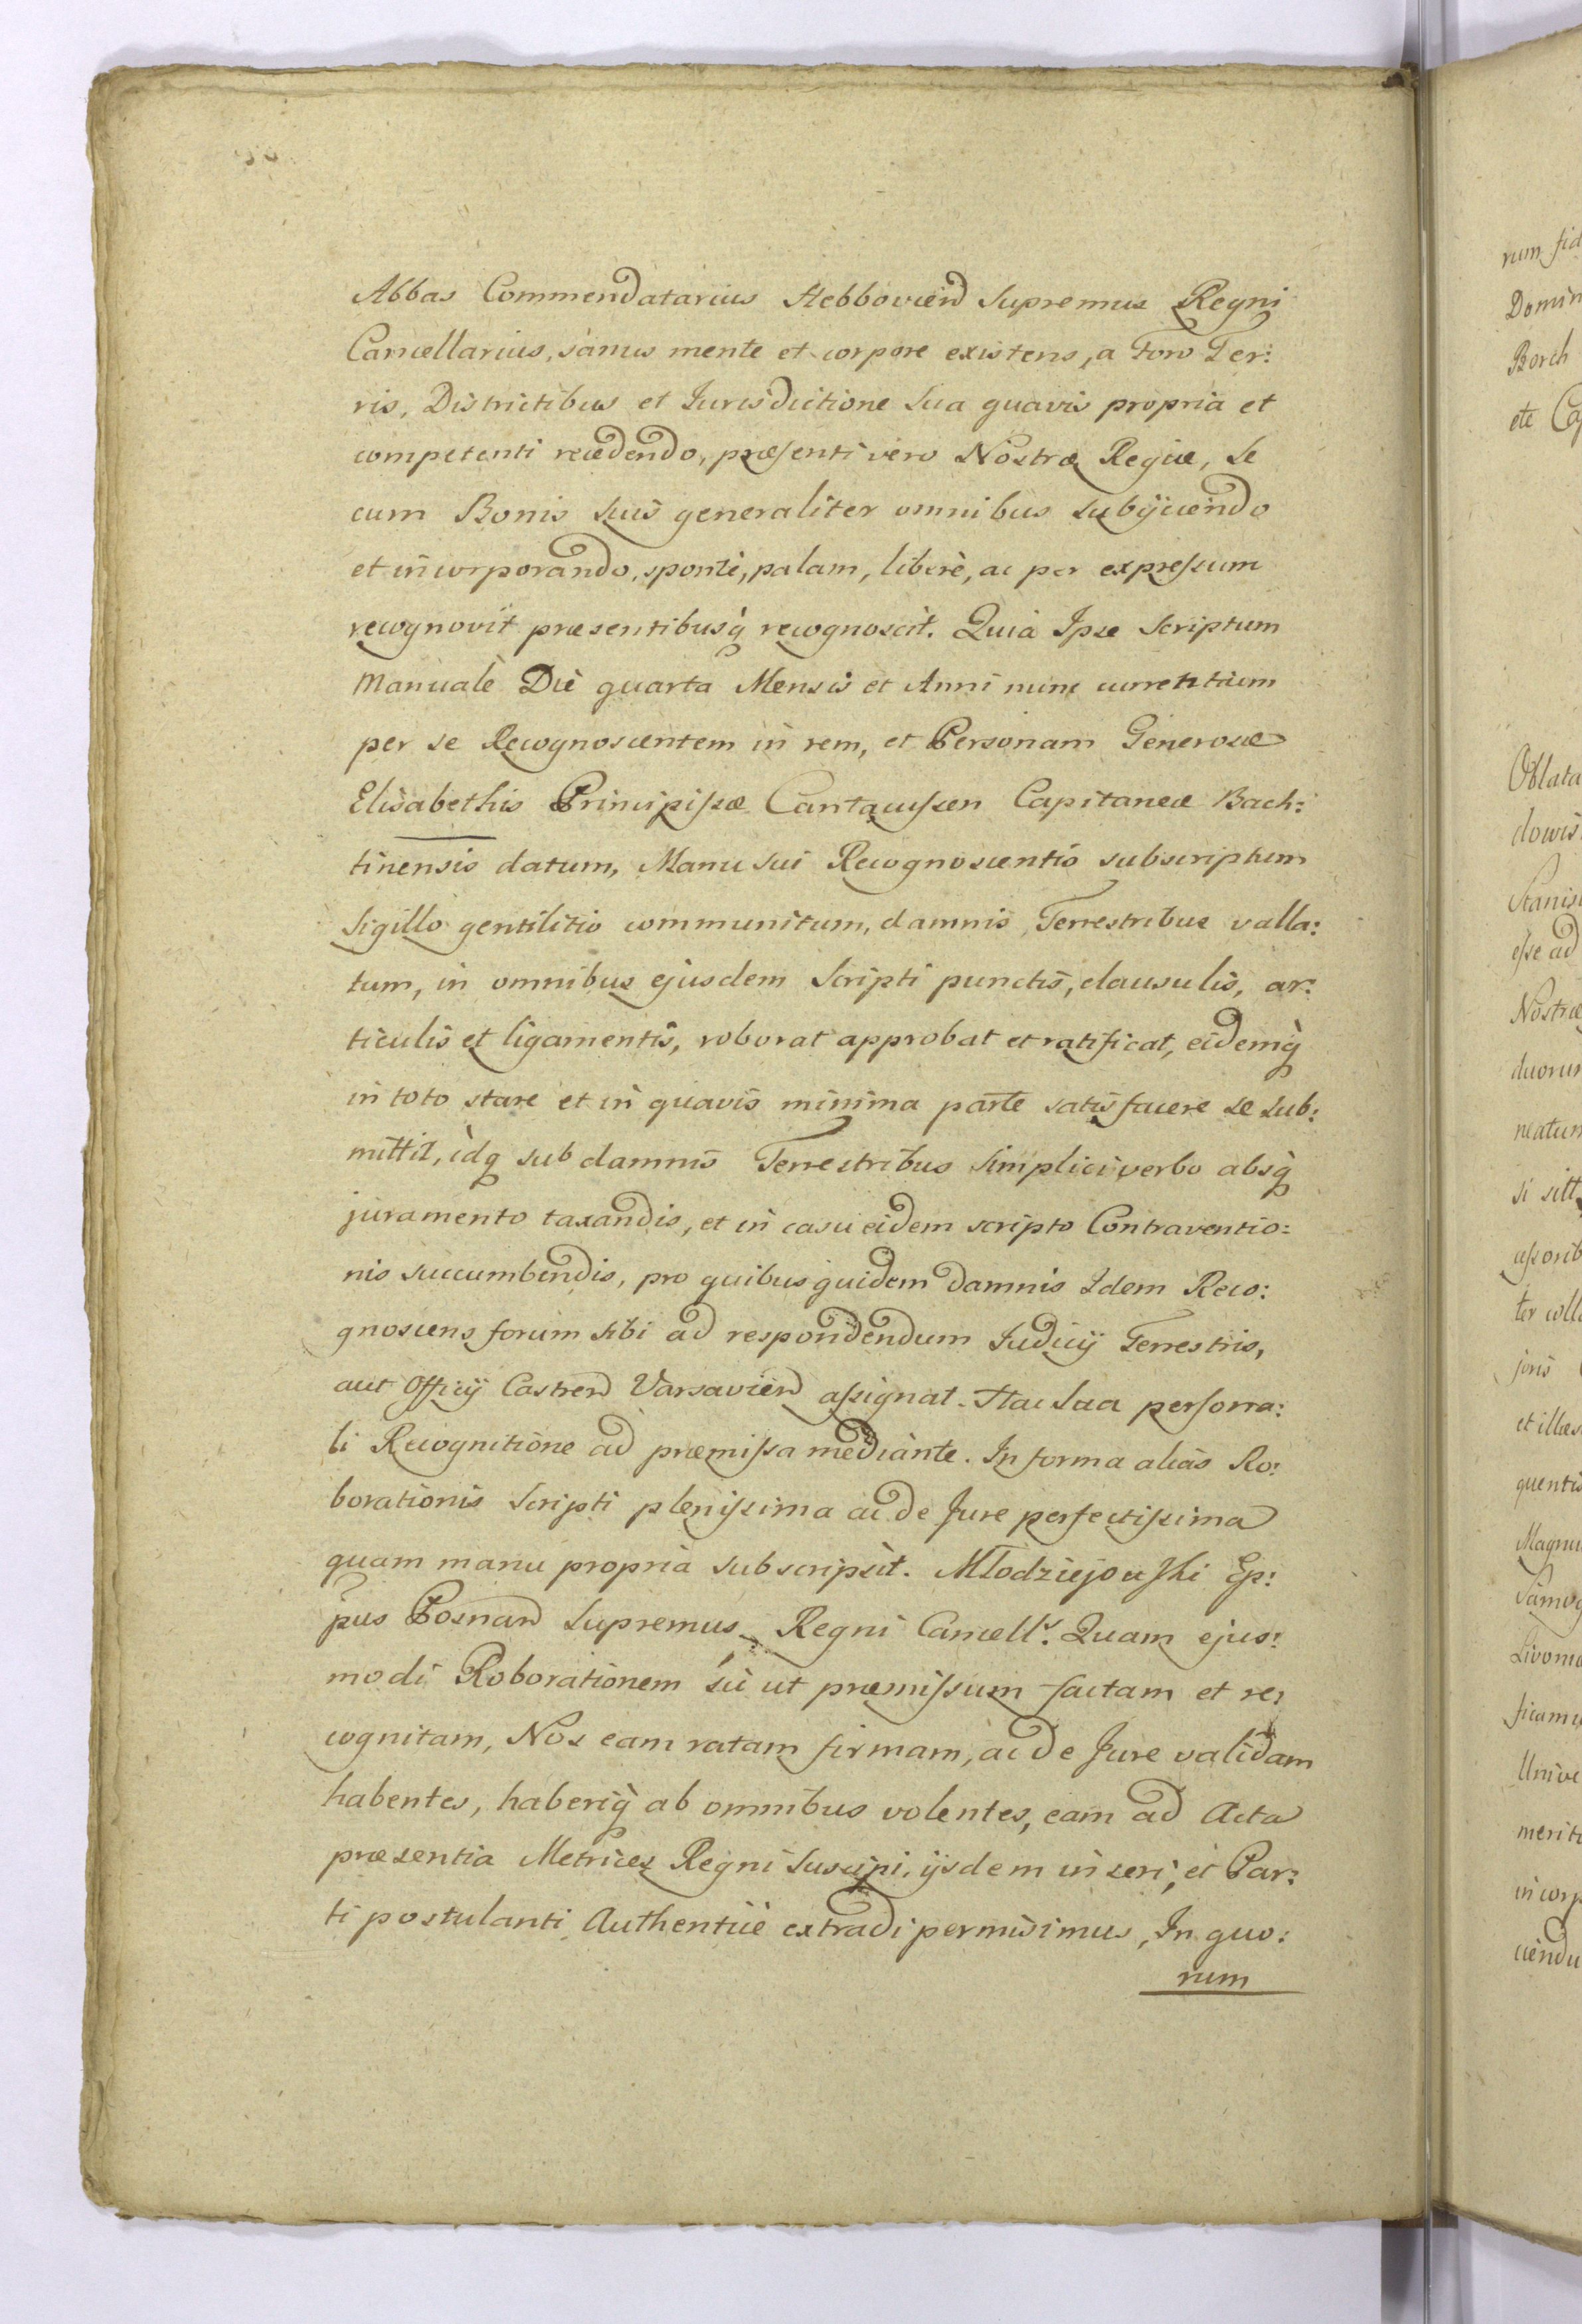 Abbas Commendatarius Hebboviens Supremus Regni
Cancellarius, sanus mente et corpore existens, a Foro Ter:
ris, Districtibus et Jurisdictione Sua quavis propria et
competenti recedendo, præsenti vero Nostræ Regiæ, se
cum Bonis suis generaliter omnibus subijciendo
et incorporando, sponte, palam, liberè, ac per expressum
recognovit præsentibusq̀ recognoscit. Quia Ipse Scriptum
Manuale Die quarta Mensis et Anni nunc currentium
per se Recognoscentem in rem, et Personam Generosæ
Elisabethis Principissæ Cantacussen Capitaneæ Bach:
tinensis datum, Manu sui Recognoscentis subscriptum
Sigillo gentilitio communitum, damnis Terrestribus valla:
tum, in omnibus ejusdem Scripti punctis, clausulis, ar:
ticulis et ligamentis, roborat approbat et ratificat, eidemq̀
in toto stare et in quavis minima parte satisfacere se sub:
mittit, idq̀ sub damnis Terrestribus simplici verbo absq̀
juramento taxandis, et in casu eidem scripto Contraventio:
nis succumbendis, pro quibus quidem damnis Idem Reco:
gnoscens forum sibi ad respondendum Judicij Terrestris,
aut Officij Castren Varsavien assignat. Hac sua persona:
li Recognitione ad præmissa mediante. In forma alias Ro:
borationis Scripti plenissima ac de Jure perfectissima
quam manu propria subscripsit. Młodziejowski Ep:
pus Posnan Supremus Regni Cancell. Quam ejus:
modi Roborationem sic ut præmissum factam et re:
cognitam, Nos eam ratam firmam, ac de Jure validam
habentes, haberiq̀ ab omnibus volentes, eam ad Acta
præsentia Metrices Regni suscipi, ijsdem inseri, et Par:
ti postulanti Authentice extradi permisimus, In quo:
rum
rum fid
Domin
Borch
etc Ca
Oblata
dowis
Stanis
esse ad
Nostræ
duorum
neatum
si sitt
ter coll
joris
et illæs
quentis
Magnu
Samog
Livonia
ficamu
Unive
merit
incorp
ciendu